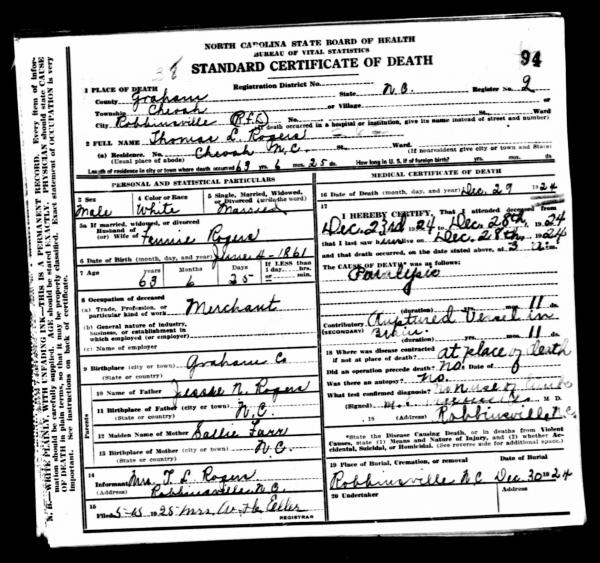 NORTH CAROLINA STATE BOARD OF HEALTH
BUREAU OF VITAL STATISTICS
STANDARD CERTIFICATE OF DEATH
94
38
1 PLACE OF DEATH
Registration District No.
State N.C. Register No. 2
County Graham
Township Cheoah or Village
City Robbinsville (R.F.D.) No. St. Ward
(If death occurred in a hospital or institution, give its name instead of street and number)
2 FULL NAME Thomas L. Rogers
(a) Residence. No. Cheoah N.C. St. Ward
(Usual place of abode) (If nonresident give city or town and State)
Length of residence in city or town where death occurred 63 yrs. 6 mos. 25 ds. How long in U. S. if of foreign birth? yrs. mos. ds.
PERSONAL AND STATISTICAL PARTICULARS
3 Sex
Male
4 Color or Race
White
5 Single, Married, Widowed, or Divorced (write the word)
Married
5a If married, widowed, or divorced
Husband of
(or) Wife of Fannie Rogers
6 Date of Birth (month, day, and year) June 4 - 1861
7 Age years Months Days If LESS than
1 day, hrs.
or min.
63 6 25
8 Occupation of deceased
(a) Trade, Profession, or
particular kind of work Merchant
(b) General nature of industry,
business, or establishment in
which employed (or employer)
(c) Name of employer
9 Birthplace (city or town) Graham Co
(State or country)
Parents
10 Name of Father Jessie N. Rogers
11 Birthplace of Father (city or town)
(State or country) N.C.
12 Maiden Name of Mother Sallie Farr
13 Birthplace of Mother (city or town)
(State or country) N.C.
14
Informant Mrs. T L Rogers
(Address) Robbinsville N.C.
15
Filed 1925 Mrs. W. H.
REGISTRAR
MEDICAL CERTIFICATE OF DEATH
16 Date of Death (month, day, and year) Dec 29 1924
17
I HEREBY CERTIFY, That I attended deceased from
Dec. 23rd 1924 to Dec 28th, 1924
that I last saw alive on Dec. 28th, 1924
and that death occurred, on the date stated above, at 3 m.
The CAUSE OF DEATH* was as follows:
Paralysis
(duration) yrs. mos. 11 ds.
Contributory Ruptured Vessel in
(SECONDARY) Brain
(duration) yrs. mos. 11 ds.
18 Where was disease contracted
if not at place of death? at place of death
Did an operation precede death? no. Date of
Was there an autopsy? no.
What test confirmed diagnosis?
(Signed) M. D.
, 19 (Address) Robbinsville N.C.
*State the Disease Causing Death, or in deaths from Violent
Causes, state (1) Means and Nature of Injury, and (2) whether Accidental, Suicidal, or Homicidal. (See reverse side for additional space.)
19 Place of Burial, Cremation, or removal Date of Burial
Robbinsville NC Dec 30 1924
20 Undertaker Address
N. B.—WRITE PLAINLY, WITH UNFADING INK—THIS IS A PERMANENT RECORD. Every item of information should be carefully supplied. AGE should be stated EXACTLY. PHYSICIAN should state CAUSE
OF DEATH in plain terms, so that it may be properly classified. Exact statement of OCCUPATION is very
important. See instructions on back of certificate.